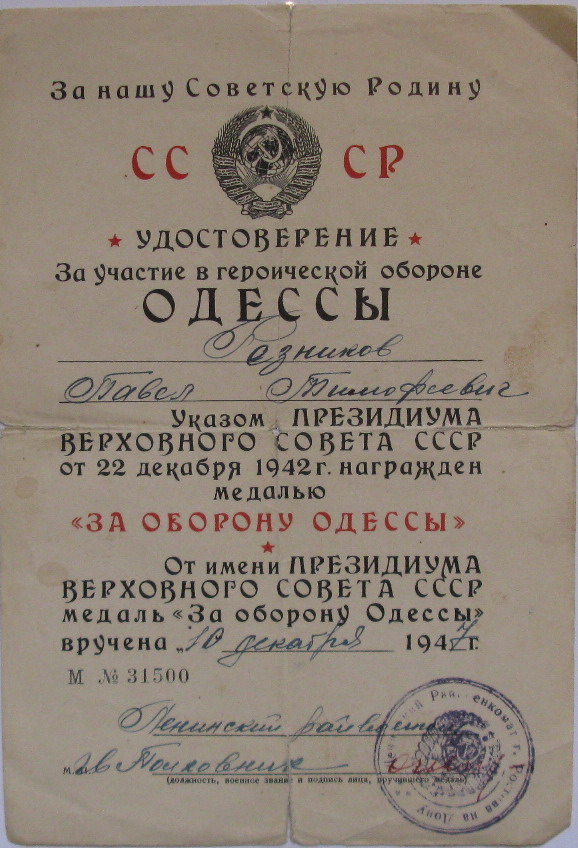 За нашу Советскую Родину
СС СР
УДОСТОВЕРЕНИЕ
За участие в героической обороне
ОДЕССЫ
Резников
Павел Тимофеевич
Указом ПРЕЗИДИУМА
ВЕРХОВНОГО СОВЕТА СССР
от 22 декабря 1942 г. награжден
медалью
«ЗА ОБОРОНУ ОДЕССЫ»
От имени ПРЕЗИДИУМА
ВЕРХОВНОГО СОВЕТА СССР
медаль «За оборону Одессы»
вручена „10 декабря 1947 г.
М № 31500
Ленинский
Полковник
(должность, военное звание и подпись лица, вручившего медаль)
г. Ростова на Дону